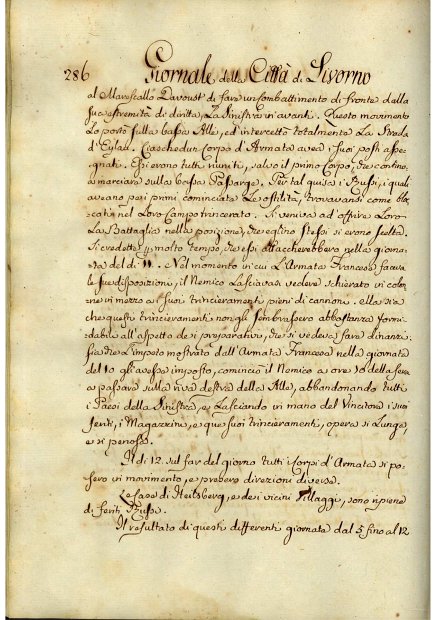 286 Giornale della Città di Livorno
al Marescallo Davoust di fare un combattimento di fronte dalla
sua estremità di diritta, la Sinistra in avanti. Questo movimento
lo portò sulla bassa Alle, ed intercettò totalmente la Strada
d'Eylau. Ciaschedun Corpo d'Armata avea i suoi posti asse-
gnati. Essi erano tutti riuniti, salvo il primo Corpo, che continuò
a marciare sulla bassa Passarge. Per tal guisa i Russi, i quali
aveano pei primi cominciate le ostilità, trovavansi come bloc-
cati nel Loro Campo trincerato. Si veniva ad offrire Loro
La Battaglia nella posizione, che eglino stessi si erono scelta.
Si credette p molto tempo, che essi attaccherebbero nella giorna-
ta del dì 11. Nel momento in cui l'Armata Francese faceva
le sue disposizioni, il Nemico lasciavasi vedere schierato in colon-
ne in mezzo a' suoi trincieramenti pieni di cannoni. Ma sia
che questi trincieramenti non gli sembrassero abbastanza formi-
dabili all'aspetto de' preparativi, che si vedeva fare dinanzi:
sia che l'impeto mostrato dall'Armata Francese nella giornata
del 10 gli avesse imposto, cominciò il Nemico a ore 10 della sera
a passare sulla riva destra della Alle, abbandonando tutti
i Paesi della Sinistra, e Lasciando in mano del Vincitore i suoi
feriti, i Magazzini, e que' suoi trincieramenti, opera sì Lunga,
e sì penosa.
Il dì 12. sul far del giorno tutti i Corpi d'Armata si po-
sero in movimento, e presero direzioni diverse.
Le Case di Heilsberg, e dei vicini Villaggi, sono ripiene
di feriti Russi.
Il resultato di questi differenti giornate dal 5 fino al 12